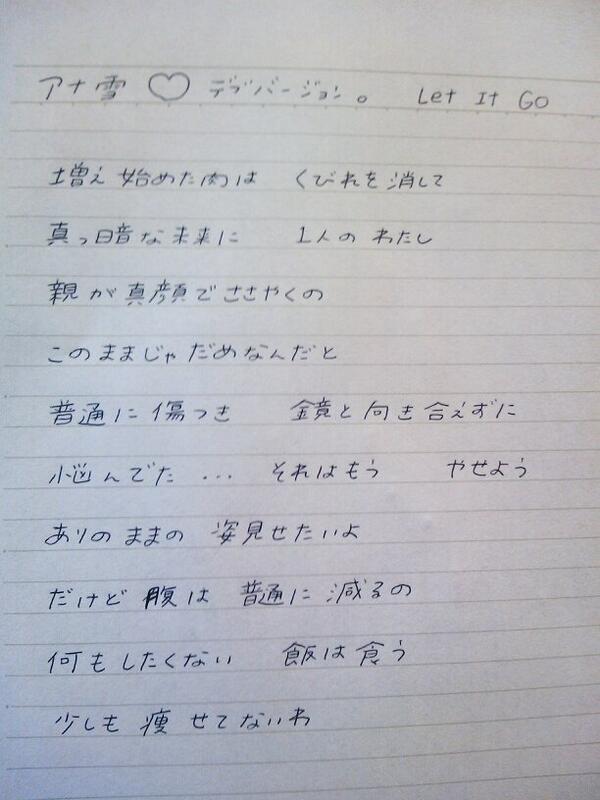 アナ雪 ♡ デブバージョン。 Let It Go
増え始めた肉は くびれを消して
真っ暗な未来に 1人のわたし
親が真顔でささやくの
このままじゃだめなんだと
普通に傷つき 鏡と向き合えずに
悩んでた ... それはもう やせよう
ありのままの 姿見せたいよ
だけど腹は 普通に減るの
何もしたくない 飯は食う
少しも痩せてないわ